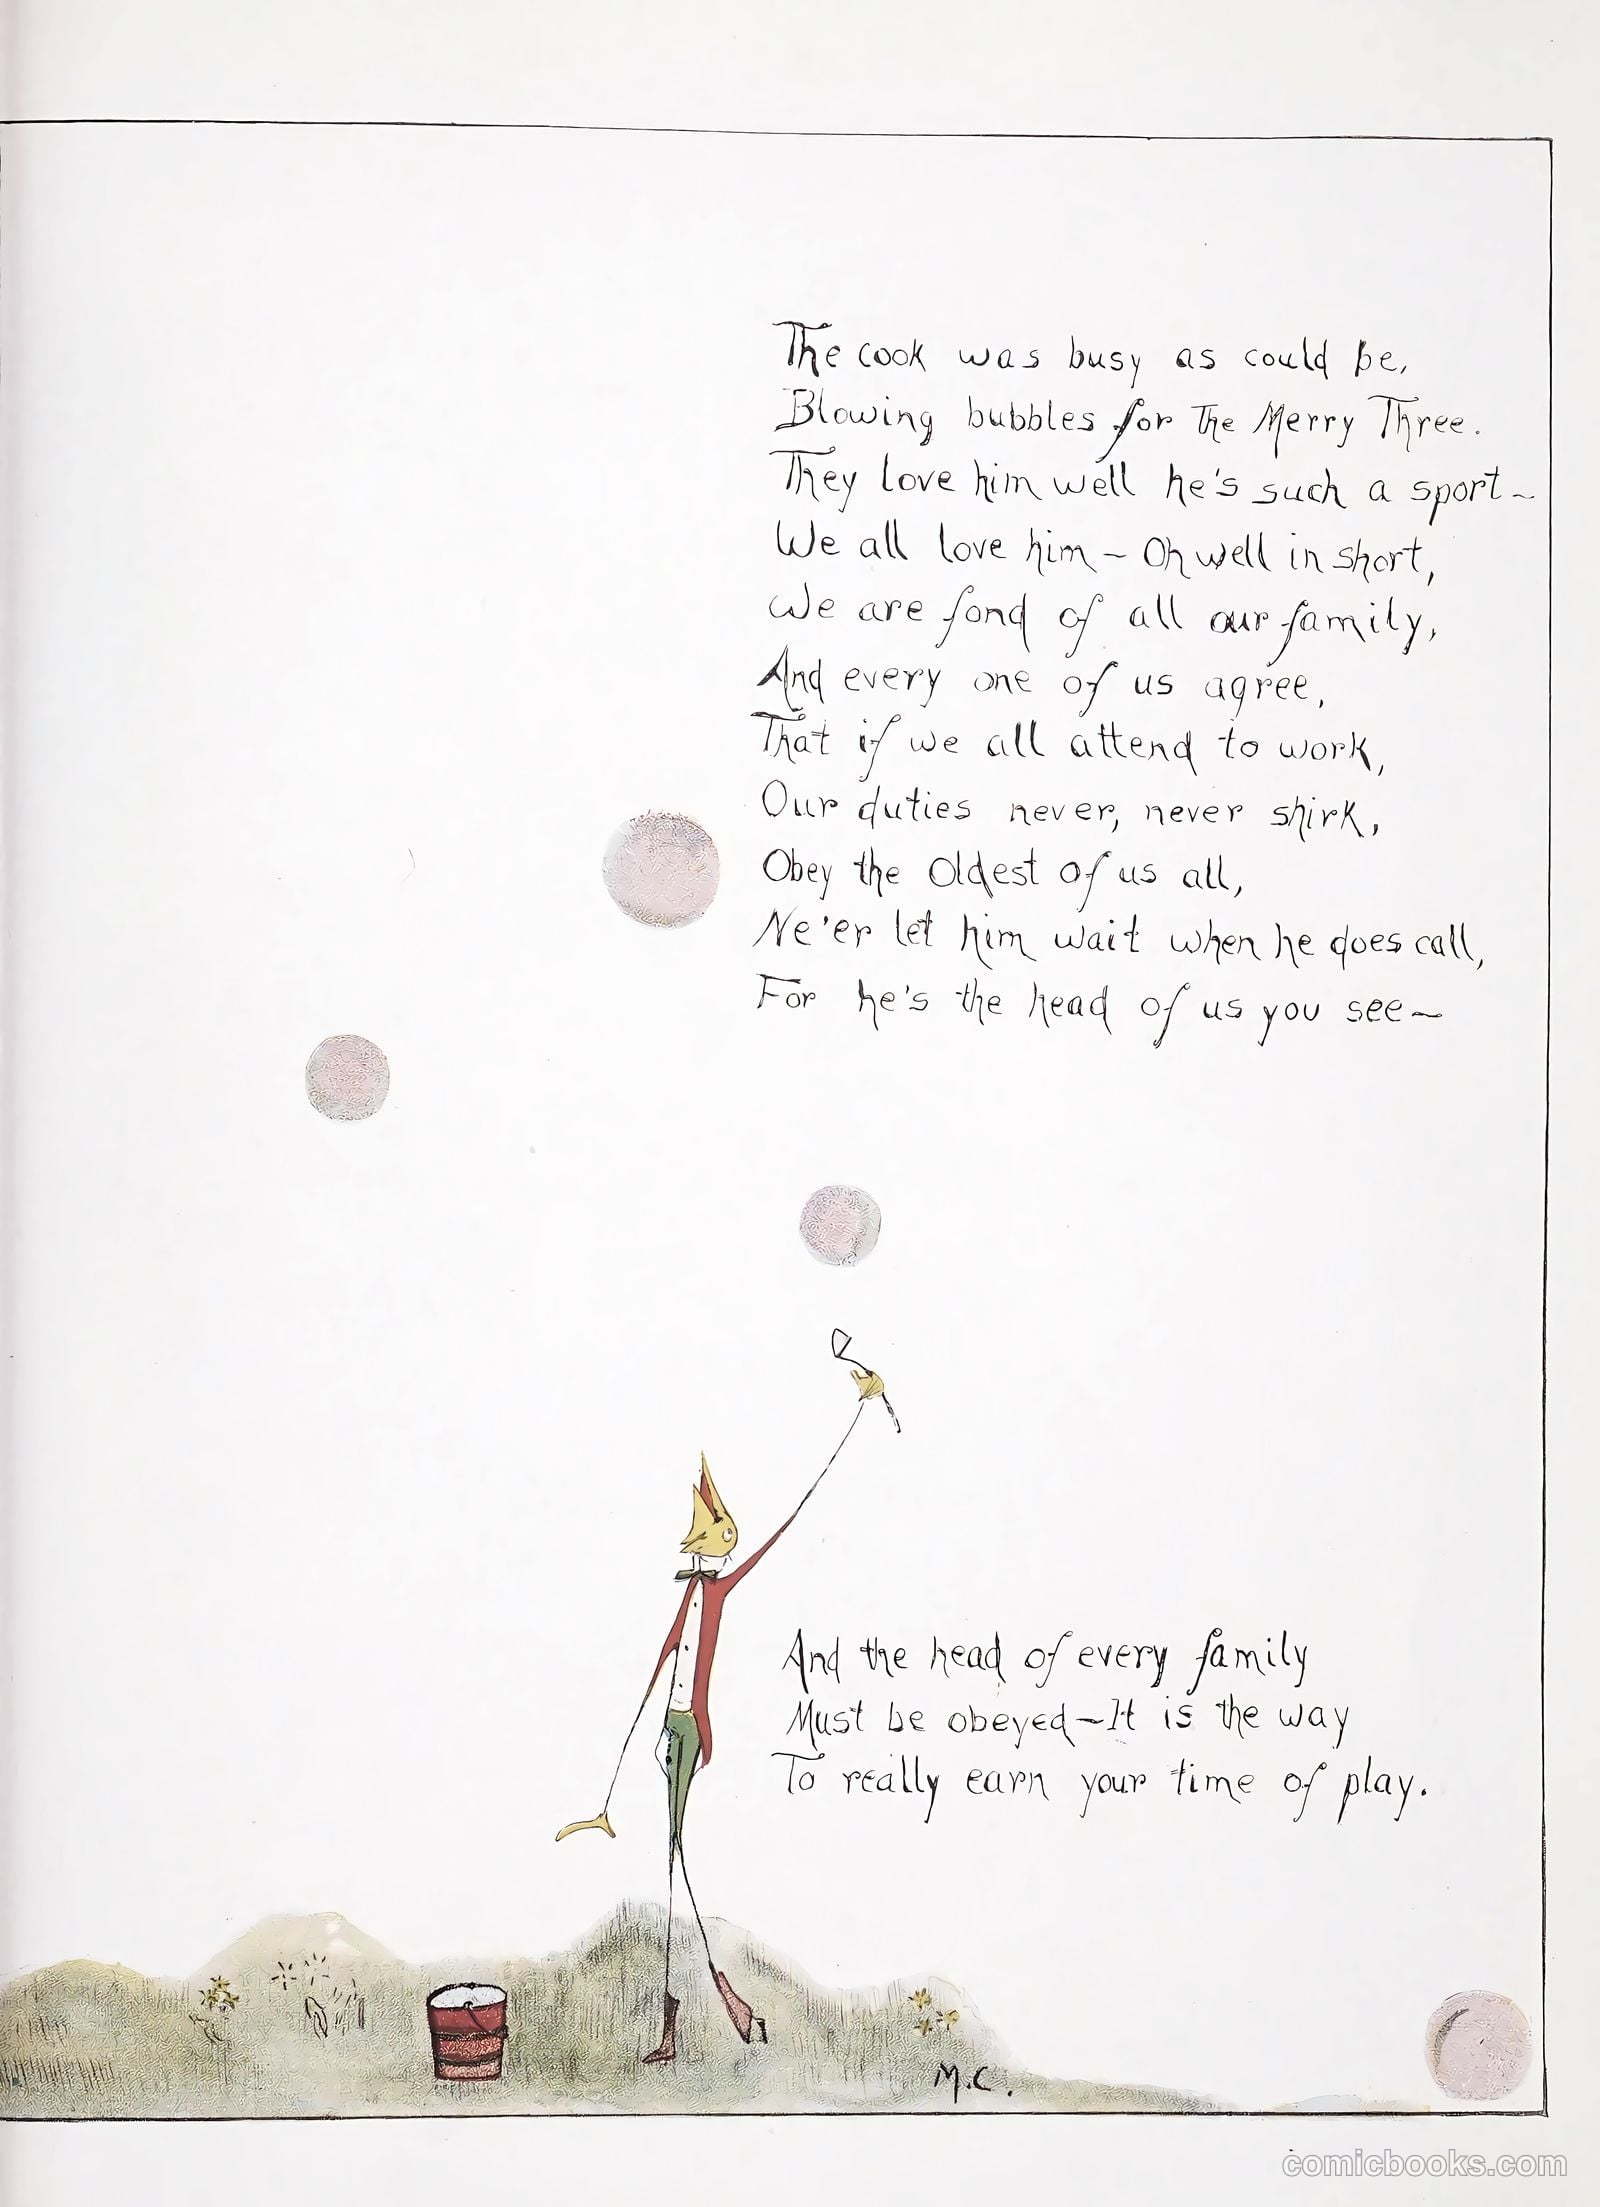 The cook was busy as could be,
Blowing bubbles for The Merry Three.
They love him well he's such a sport~
We all love him~Oh well in short,
We are fond of all our family,
And every one of us agree,
That if we all attend to work,
Our duties never, never shirk,
Obey the Oldest of us all,
Ne'er let him wait when he does call,
For he's the head of us you see~
And the head of every family
Must be obeyed~It is the way
To really earn your time of play.
M.C.
comicbooks.com